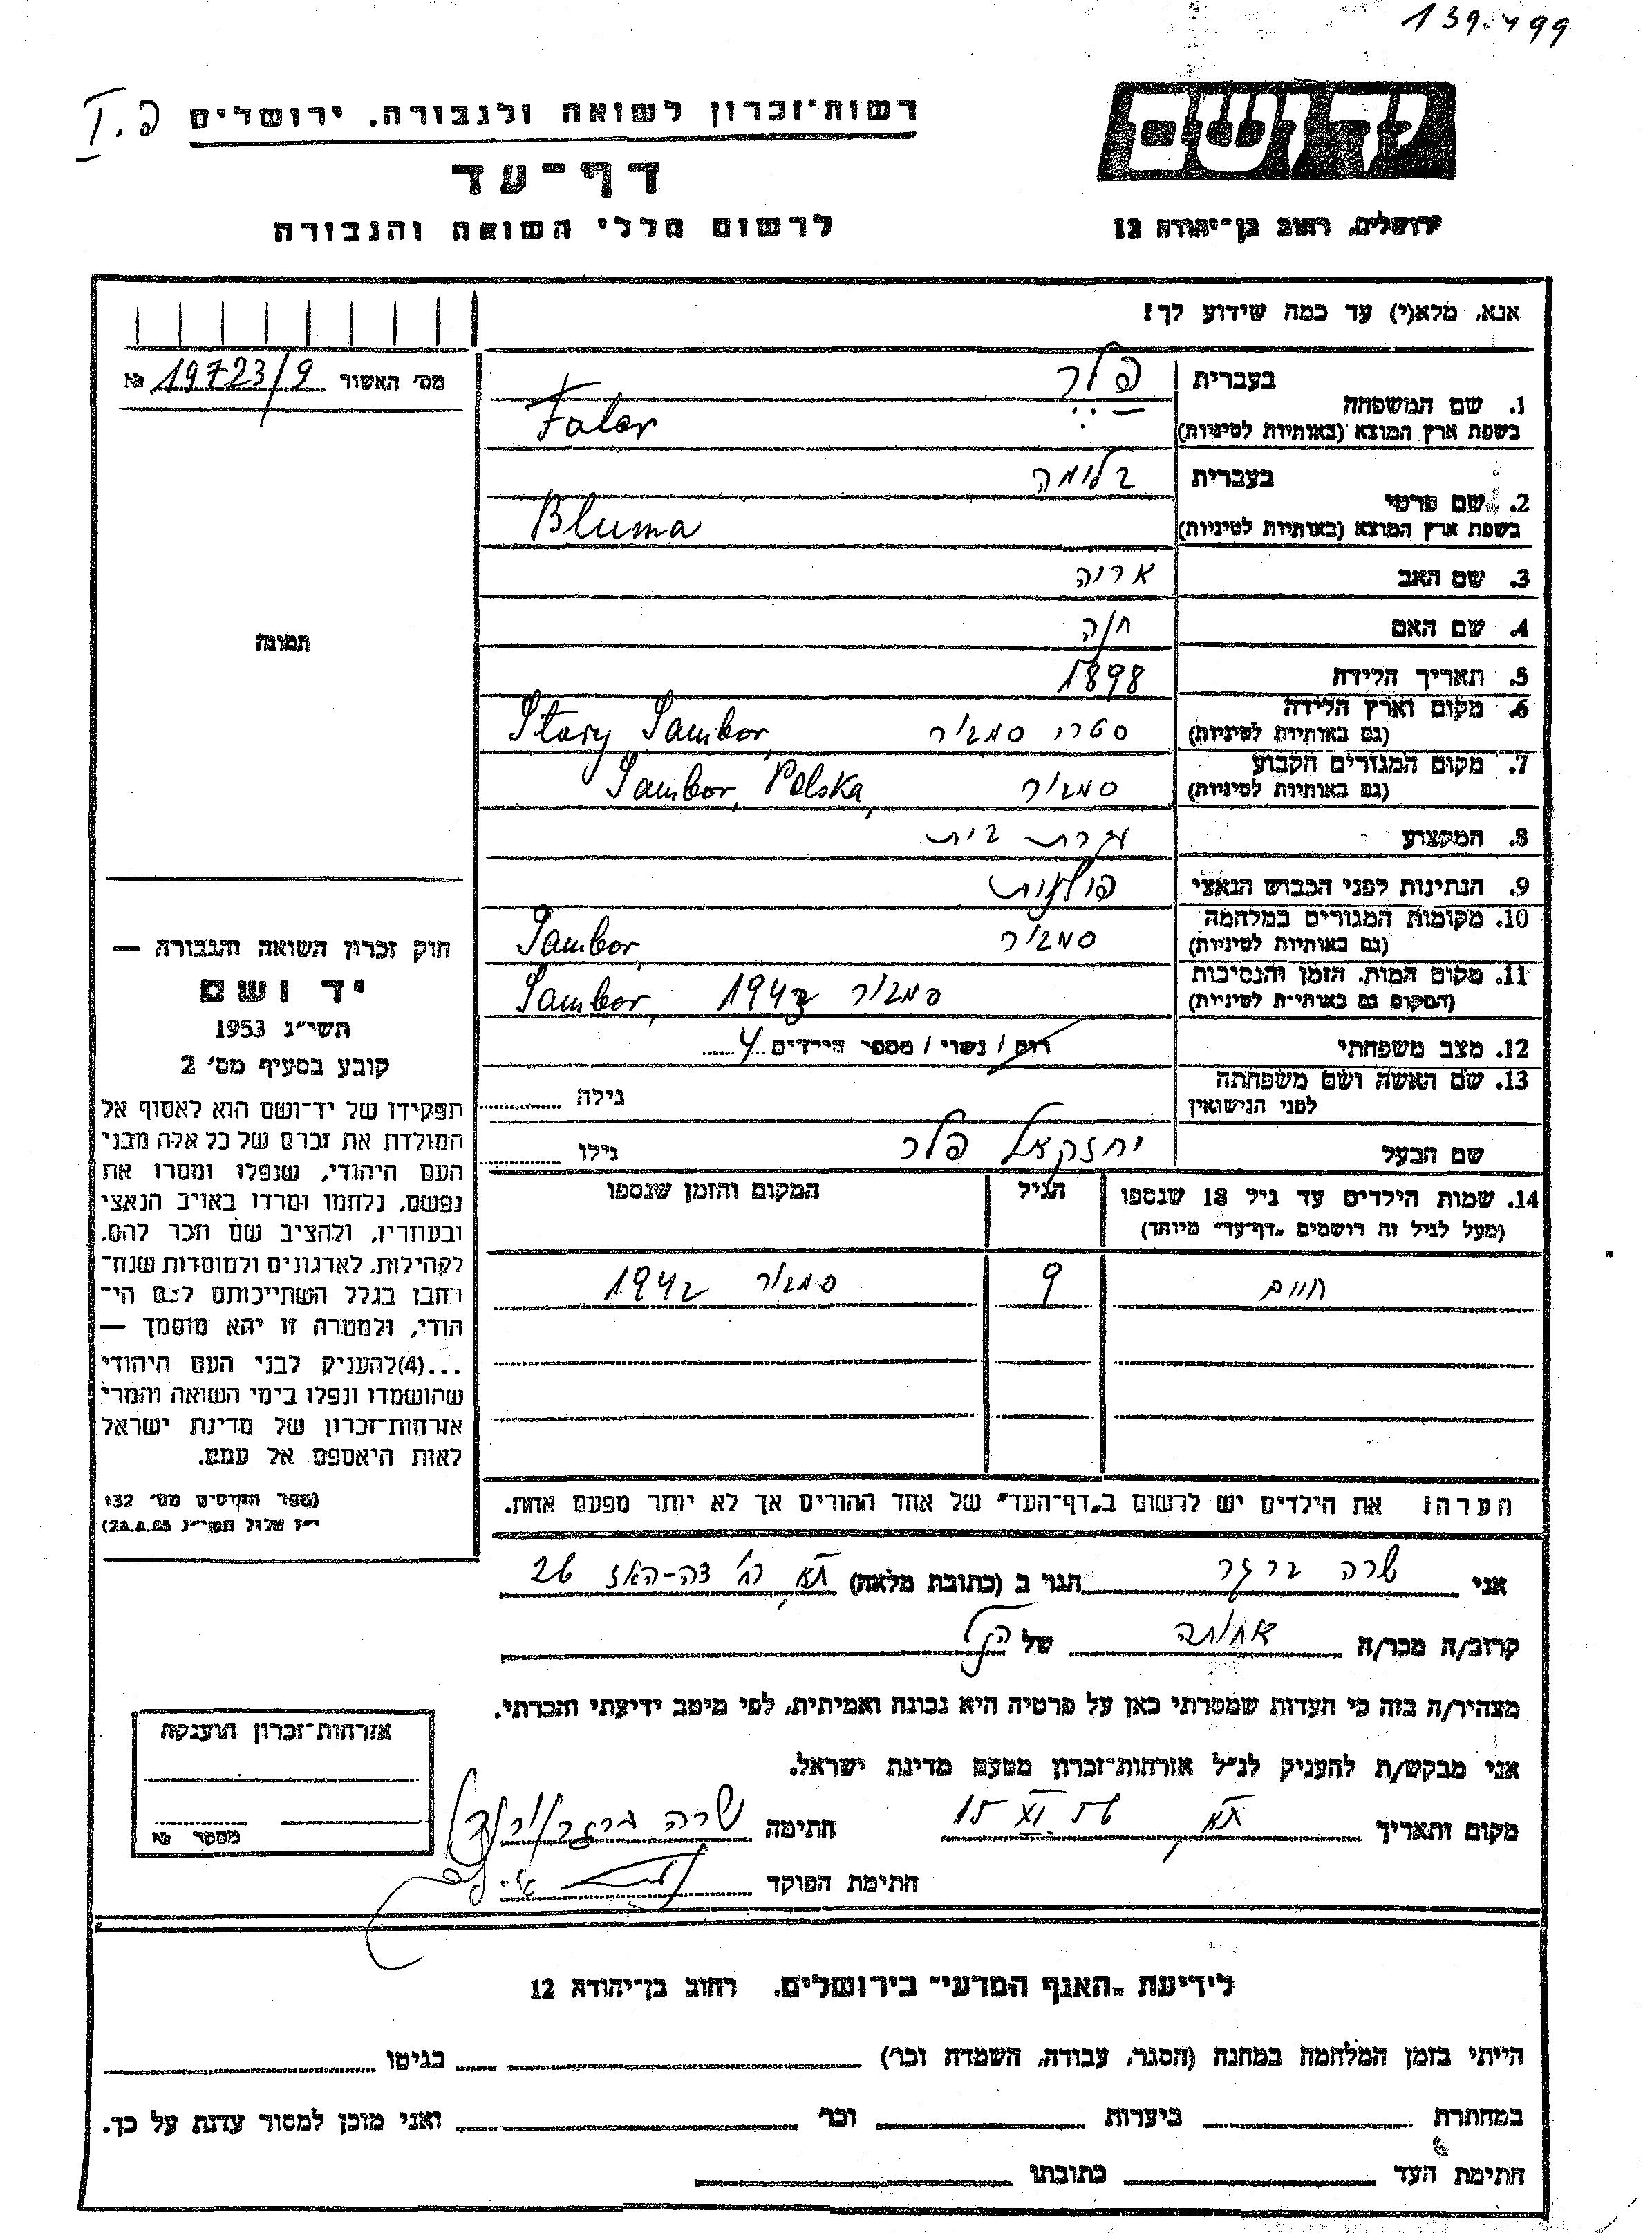 139.499
רשות־זכרון לשואה ולגבורה, ירושלים
דף־עד
לרשום חללי השואה והגבורה
יד ושם
ירושלים, רחוב בן־יהודה 12
אנא, מלא(י) עד כמה שידוע לך!
מס׳ האשור 19723/9 №
תמונה
1. שם המשפחה
בעברית פלר
בשפת ארץ המוצא (באותיות לטיניות) Faler
2. שם פרטי
בעברית בלומה
בשפת ארץ המוצא (באותיות לטיניות) Bluma
3. שם האב אריה
4. שם האם חיה
5. תאריך הלידה 1898
6. מקום וארץ הלידה
(גם באותיות לטיניות) סטרי סמבור Stary Sambor,
7. מקום המגורים הקבוע
(גם באותיות לטיניות) סמבור Sambor, Polska,
8. המקצוע עקרת בית
9. הנתינות לפני הכבוש הנאצי פולנית
10. מקומות המגורים במלחמה
(גם באותיות לטיניות) סמבור Sambor,
11. מקום המות, הזמן והנסיבות
(המקום גם באותיות לטיניות) סמבור 1942 Sambor,
12. מצב משפחתי רוק / נשוי / מספר הילדים 4
13. שם האשה ושם משפחתה
לפני הנישואין גילה
שם הבעל יחזקאל פלר גילו
14. שמות הילדים עד גיל 18 שנספו הגיל המקום והזמן שנספו
(מעל לגיל זה רושמים „דף־עד” מיוחד)
חיים 9 סמבור 1942
הערה! את הילדים יש לרשום ב„דף־העד” של אחד ההורים אך לא יותר מפעם אחת.
חוק זכרון השואה והגבורה —
יד ושם
תשי״ג 1953
קובע בסעיף מס׳ 2
תפקידו של יד־ושם הוא לאסוף אל
המולדת את זכרם של כל אלה מבני
העם היהודי, שנפלו ומסרו את
נפשם, נלחמו ומרדו באויב הנאצי
ובעוזריו, ולהציב שם וזכר להם,
לקהילות, לארגונים ולמוסדות שנח־
רבו בגלל השתייכותם לעם הי־
הודי, ולמטרה זו יהא מוסמך —
...(4)להעניק לבני העם היהודי
שהושמדו ונפלו בימי השואה והמרי
אזרחות־זכרון של מדינת ישראל
לאות היאספם אל עמם.
(ספר החוקים מס׳ 132
י״ז אלול תשי״ג 28.8.53)
אני שרה ברגר הגר ב (כתובת מלאה) תא, רח׳ 26
קרוב/ה מכר/ה אחותה של הנ״ל
מצהיר/ה בזה כי העדות שמסרתי כאן על פרטיה היא נכונה ואמיתית, לפי מיטב ידיעתי והכרתי.
אני מבקש/ת להעניק לנ״ל אזרחות־זכרון מטעם מדינת ישראל.
מקום ותאריך תא, 15 XI 56 חתימה שרה ברגר
חתימת הפוקד
אזרחות־זכרון הוענקה
מספר №
לידיעת „האגף המדעי” בירושלים, רחוב בן־יהודה 12
הייתי בזמן המלחמה במחנה (הסגר, עבודה, השמדה וכו׳) בגיטו
במחתרת ביערות וכו׳ ואני מוכן למסור עדות על כך.
חתימת העד כתובתו